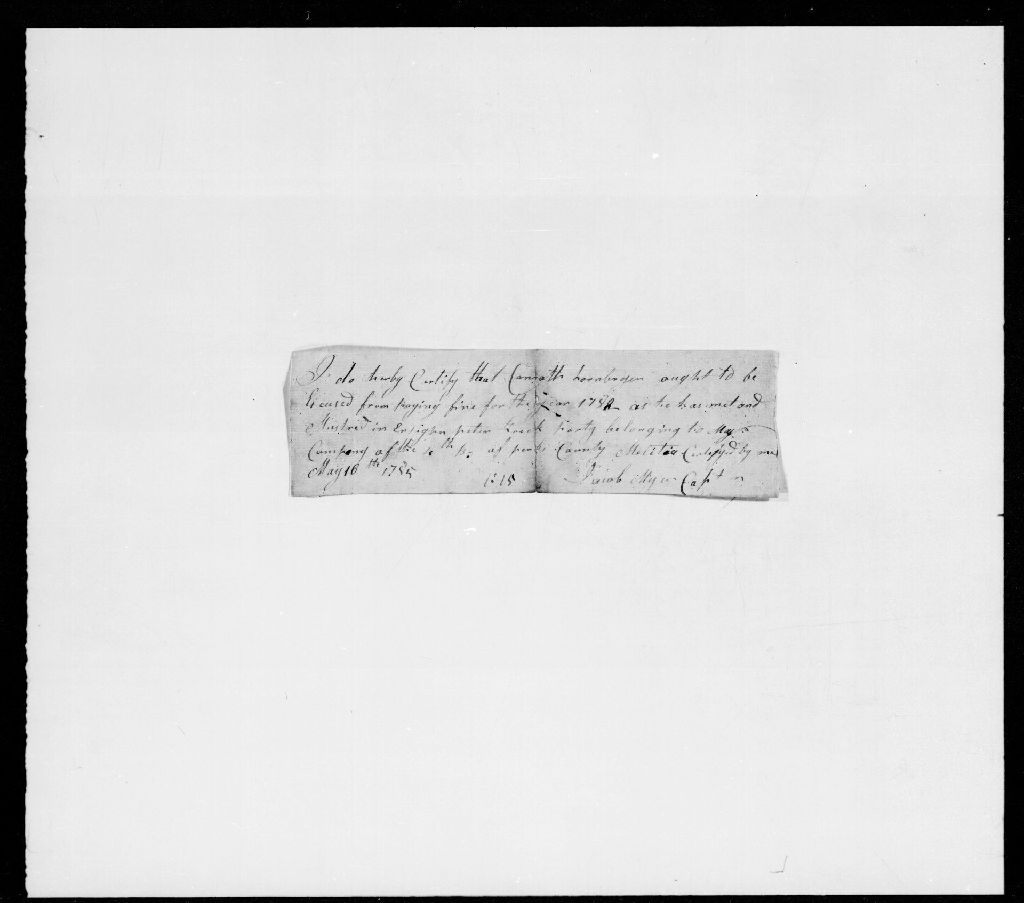 I do hereby Certify that Conrath hornberger ought to be
Excused from paying fine for the year 1782 as he has met and
Mustred in Ensighn peter Party belonging to My
Company of the 6th of perks County Melitia Certifyd by me
May 16th 1785 1:15 Jacob Myer Capt